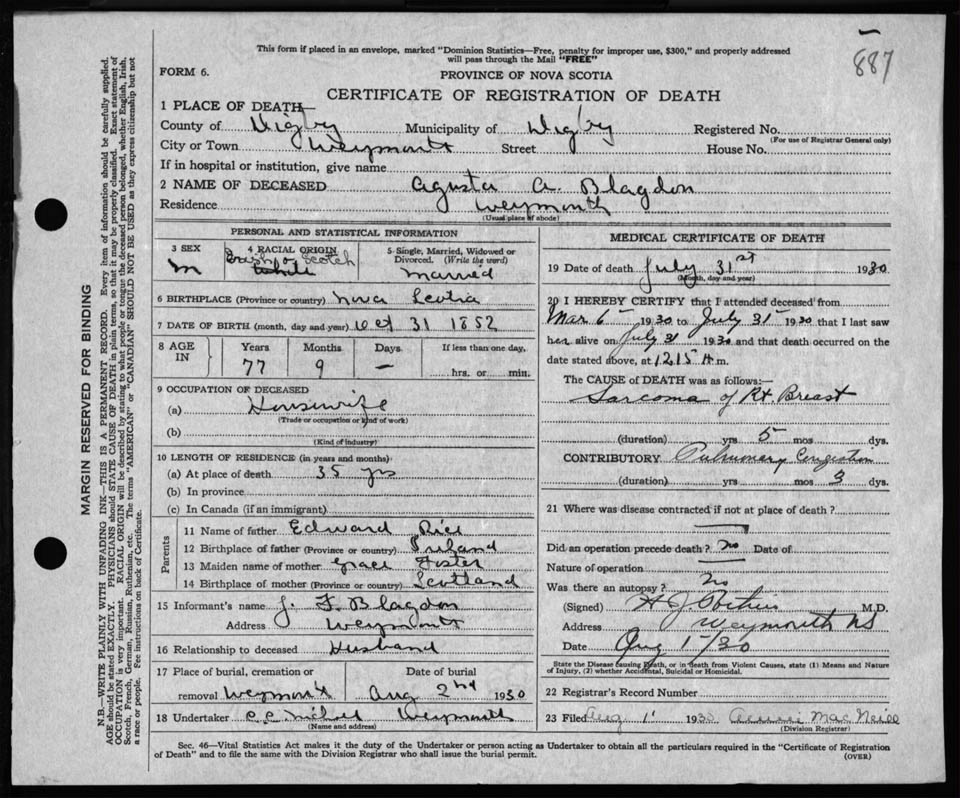 887
This form if placed in an envelope, marked "Dominion Statistics—Free, penalty for improper use, $300," and properly addressed
will pass through the Mail "FREE"
FORM 6.
PROVINCE OF NOVA SCOTIA
CERTIFICATE OF REGISTRATION OF DEATH
1 PLACE OF DEATH—
County of Digby Municipality of Digby Registered No.
(For use of Registrar General only)
City or Town Weymouth Street House No.
If in hospital or institution, give name
2 NAME OF DECEASED Agusta A. Blagdon
Residence Weymouth
(Usual place of abode)
PERSONAL AND STATISTICAL INFORMATION
3 SEX 4 RACIAL ORIGIN 5 Single, Married, Widowed or
Divorced. (Write the word)
M Irish & Scotch white married
6 BIRTHPLACE (Province or country) Nova Scotia
7 DATE OF BIRTH (month, day and year) Oct 31 1852
8 AGE IN Years Months Days If less than one day,
77 9 — hrs. or min.
9 OCCUPATION OF DECEASED
(a) Housewife
(Trade or occupation or kind of work)
(b)
(Kind of industry)
10 LENGTH OF RESIDENCE (in years and months)
(a) At place of death 35 yrs
(b) In province
(c) In Canada (if an immigrant)
Parents
11 Name of father Edward Rice
12 Birthplace of father (Province or country) Ireland
13 Maiden name of mother Grace Foster
14 Birthplace of mother (Province or country) Scotland
15 Informant's name J. F. Blagdon
Address Weymouth
16 Relationship to deceased Husband
17 Place of burial, cremation or Date of burial
removal Weymouth Aug 2nd 1930
18 Undertaker Weymouth
(Name and address)
MEDICAL CERTIFICATE OF DEATH
19 Date of death July 31st 1930
(Month, day and year)
20 I HEREBY CERTIFY that I attended deceased from
Mar 6 1930 to July 31 1930 that I last saw
her alive on July 31 1930 and that death occurred on the
date stated above, at 12 15 A m.
The CAUSE of DEATH was as follows:—
Sarcoma of Rt. Breast
(duration) yrs 5 mos dys.
CONTRIBUTORY Pulmonary Congestion
(duration) yrs mos 3 dys.
21 Where was disease contracted if not at place of death?
Did an operation precede death? no Date of
Nature of operation
Was there an autopsy? No
(Signed) H J Pothier M.D.
Address Weymouth NS
Date Aug 1 /30
State the Disease causing Death, or in death from Violent Causes, state (1) Means and Nature
of Injury, (2) whether Accidental, Suicidal or Homicidal.
22 Registrar's Record Number
23 Filed Aug 1 1930 MacNeill
(Division Registrar)
Sec. 46—Vital Statistics Act makes it the duty of the Undertaker or person acting as Undertaker to obtain all the particulars required in the "Certificate of Registration
of Death" and to file the same with the Division Registrar who shall issue the burial permit.
(OVER)
MARGIN RESERVED FOR BINDING
N.B.—WRITE PLAINLY WITH UNFADING INK—THIS IS A PERMANENT RECORD. Every item of information should be carefully supplied.
AGE should be stated EXACTLY. PHYSICIANS should STATE CAUSE OF DEATH in plain terms, so that it may be properly classified. Exact statement of
OCCUPATION is very important. RACIAL ORIGIN will be described by stating to what people or tongue the deceased person belonged, whether English, Irish,
Scotch, French, German, Russian, Ruthenian, etc. The terms "AMERICAN" or "CANADIAN" SHOULD NOT BE USED as they express citizenship but not
a race or people. Fee instructions on back of Certificate.